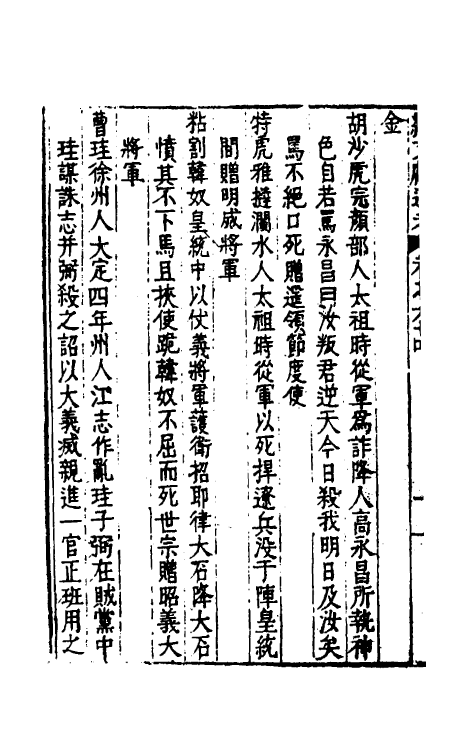 金
胡沙虎完顏部人太祖時從軍爲詐降人高永昌所執神
色自若罵永昌曰汝叛君逆天今日殺我明日及汝矣
罵不絕口死贈遥領節度使
特虎雅撻瀾水人太祖時從軍以死捍遼兵没于陣皇統
間贈明威將軍
粘割韓奴皇統中以仗義將軍護衛招耶律大石降大石
憤其不下馬且挾使跪韓奴不屈而死世宗贈昭義大
將軍
曹珪徐州人大定四年州人江志作亂珪子弼在賊黨中
珪謀誅志并弼殺之詔以大義滅親進一官正班用之